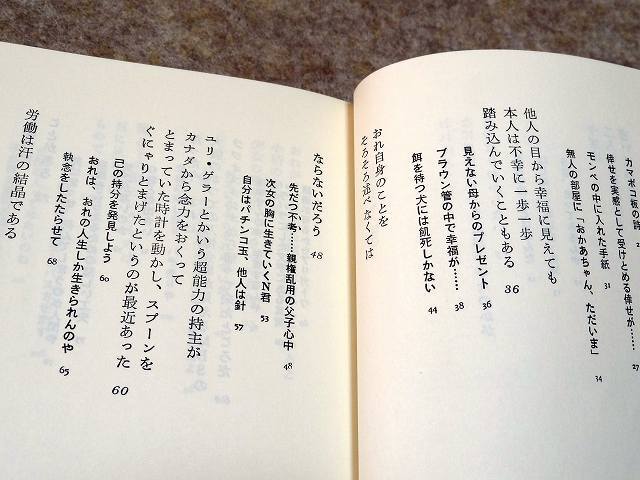 カマボコ板の詩
倖せを実感として受けとめる倖せが…… 27
モンペの中に入れた手紙 31
無人の部屋に「おかあちゃん、ただいま」 34
他人の目から幸福に見えても
本人は不幸に一歩一歩
踏み込んでいくこともある 36
見えない母からのプレゼント 36
ブラウン管の中で幸福が…… 38
餌を待つ犬には餓死しかない 44
おれ自身のことを
そろそろ述べなくては
ならないだろう 48
先だつ不考……親権乱用の父子心中 48
次女の胸に生きていくN君 53
自分はパチンコ玉、他人は針 57
ユリ・ゲラーとかいう超能力の持主が
カナダから念力をおくって
とまっていた時計を動かし、スプーンを
ぐにゃりとまげたというのが最近あった 60
己の持分を発見しよう 60
おれは、おれの人生しか生きられんのや 65
執念をしたたらせて 68
労働は汗の結晶である